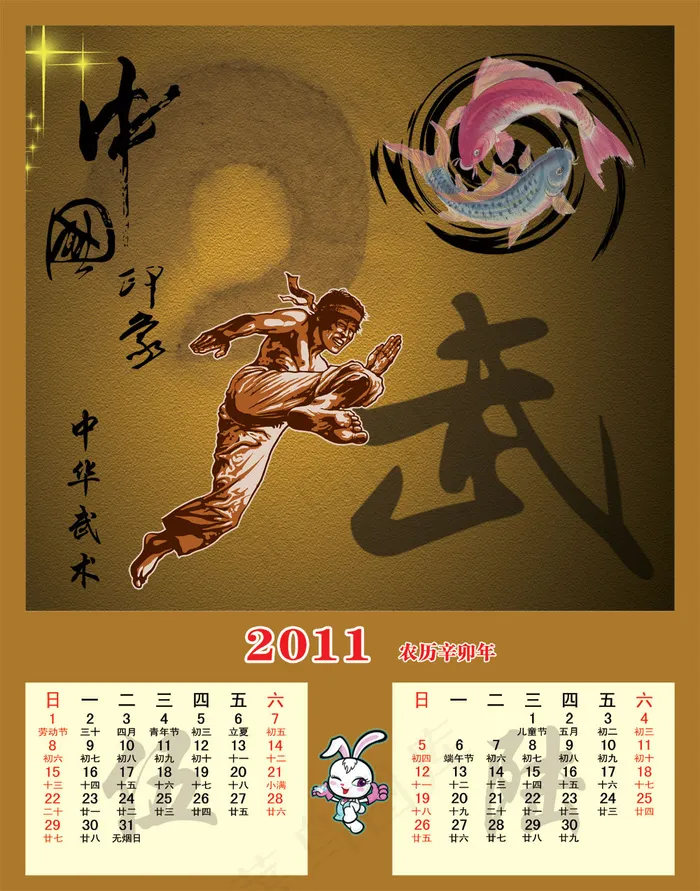 中國
印象
中华武术
武
2011 农历辛卯年
日 一 二 三 四 五 六
1 2 3 4 5 6 7
劳动节 三十 四月 青年节 初四 立夏 初五
8 9 10 11 12 13 14
初六 初七 初八 初九 初十 十一 十二
15 16 17 18 19 20 21
十三 十四 十五 十六 十七 十八 小满
22 23 24 25 26 27 28
二十 廿一 廿二 廿三 廿四 廿五 廿六
29 30 31
廿七 廿八 无烟日
伍
日 一 二 三 四 五 六
1 2 3 4
儿童节 五月 初二 初三
5 6 7 8 9 10 11
初四 端午节 初六 初七 初八 初九 初十
12 13 14 15 16 17 18
十一 十二 十三 十四 十五 十六 十七
19 20 21 22 23 24 25
十八 十九 二十 廿一 廿二 廿三 廿四
26 27 28 29 30
廿五 廿六 廿七 廿八 廿九
陆